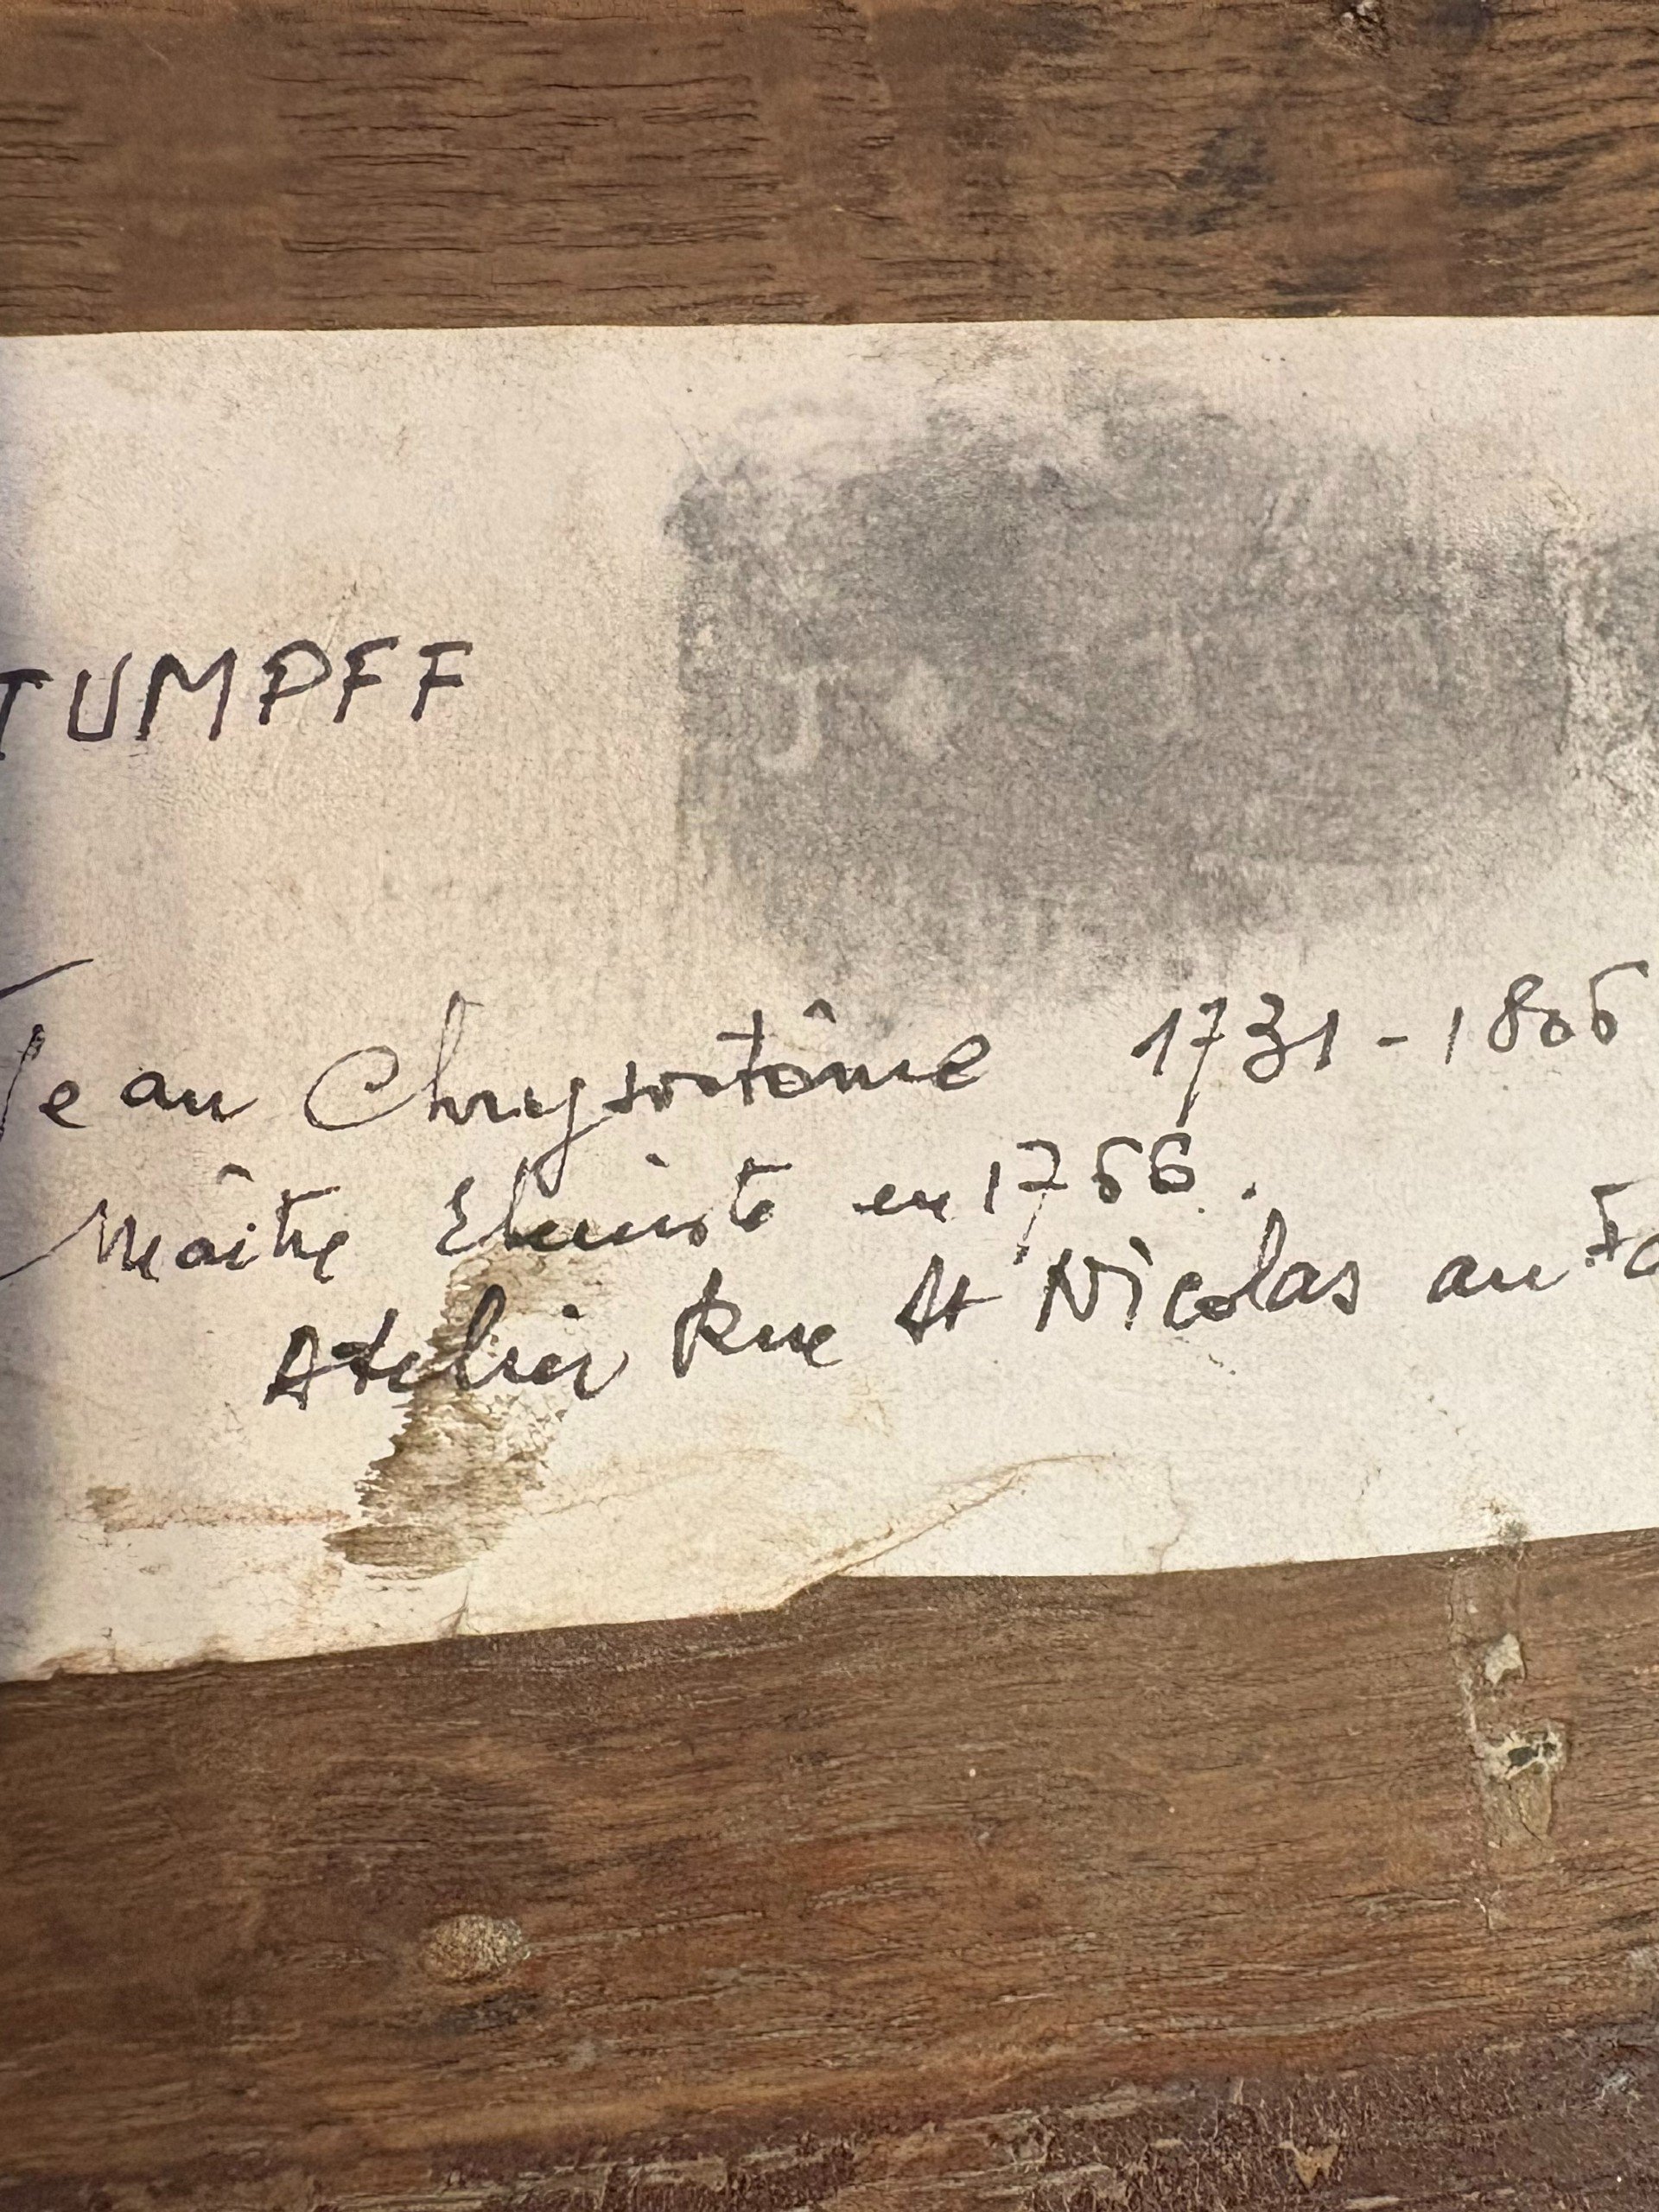 TUMPFF
Jean Chrysostôme 1731-1806
Maître Ebéniste en 1766.
Atelier Rue St Nicolas au Fa